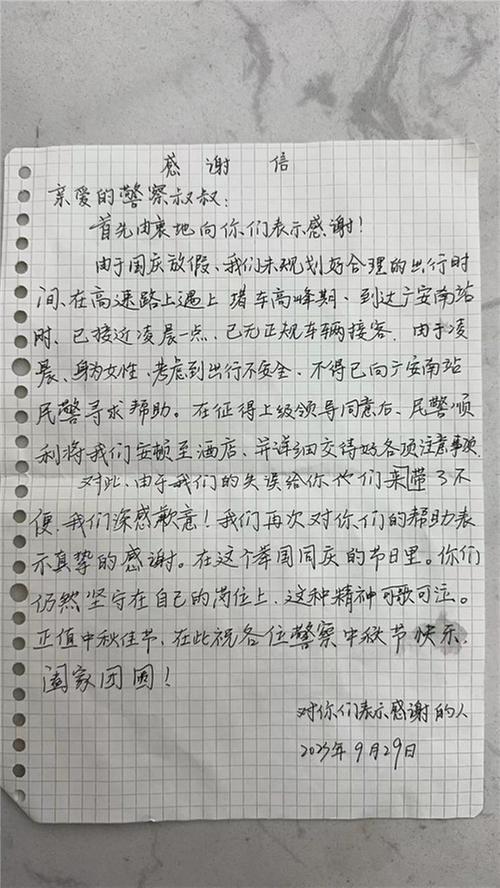 感谢信
亲爱的警察叔叔：
首先由衷地向你们表示感谢！
由于国庆放假、我们未规划好合理的出行时
间、在高速路上遇上堵车高峰期、到达广安南站
时、已接近凌晨一点、已无正规车辆接客。由于凌
晨、身为女性、考虑到出行不安全、不得已向广安南站
民警寻求帮助。在征得上级领导同意后、民警顺
利将我们安顿至酒店、并详细交待好各项注意事项.
对此、由于我们的失误给你们来带了不
便、我们深感歉意！我们再次对你们的帮助表
示真挚的感谢。在这个举国同庆的节日里。你们
仍然坚守在自己的岗位上、这种精神可歌可泣。
正值中秋佳节、在此祝各位警察中秋节快乐、
阖家团圆！
对你们表示感谢的人
2023年9月29日